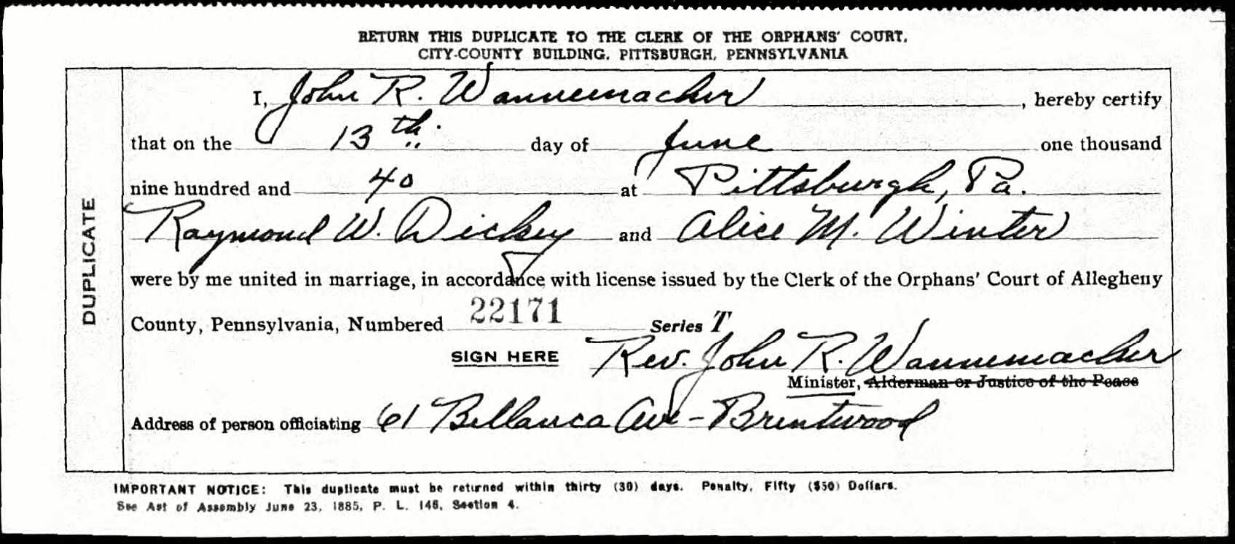 RETURN THIS DUPLICATE TO THE CLERK OF THE ORPHANS' COURT,
CITY-COUNTY BUILDING, PITTSBURGH, PENNSYLVANIA
DUPLICATE
I, John R. Wannemacher, hereby certify
that on the 13th day of June one thousand
nine hundred and 40 at Pittsburgh, Pa.
Raymond W. Dickey and Alice M. Winter
were by me united in marriage, in accordance with license issued by the Clerk of the Orphans' Court of Allegheny
County, Pennsylvania, Numbered 22171 Series T
SIGN HERE Rev. John R. Wannemacher
Minister, Alderman or Justice of the Peace
Address of person officiating 61 Bellanca Ave - Brentwood
IMPORTANT NOTICE: This duplicate must be returned within thirty (30) days. Penalty, Fifty ($50) Dollars.
See Act of Assembly June 23, 1885, P. L. 146, Section 4.